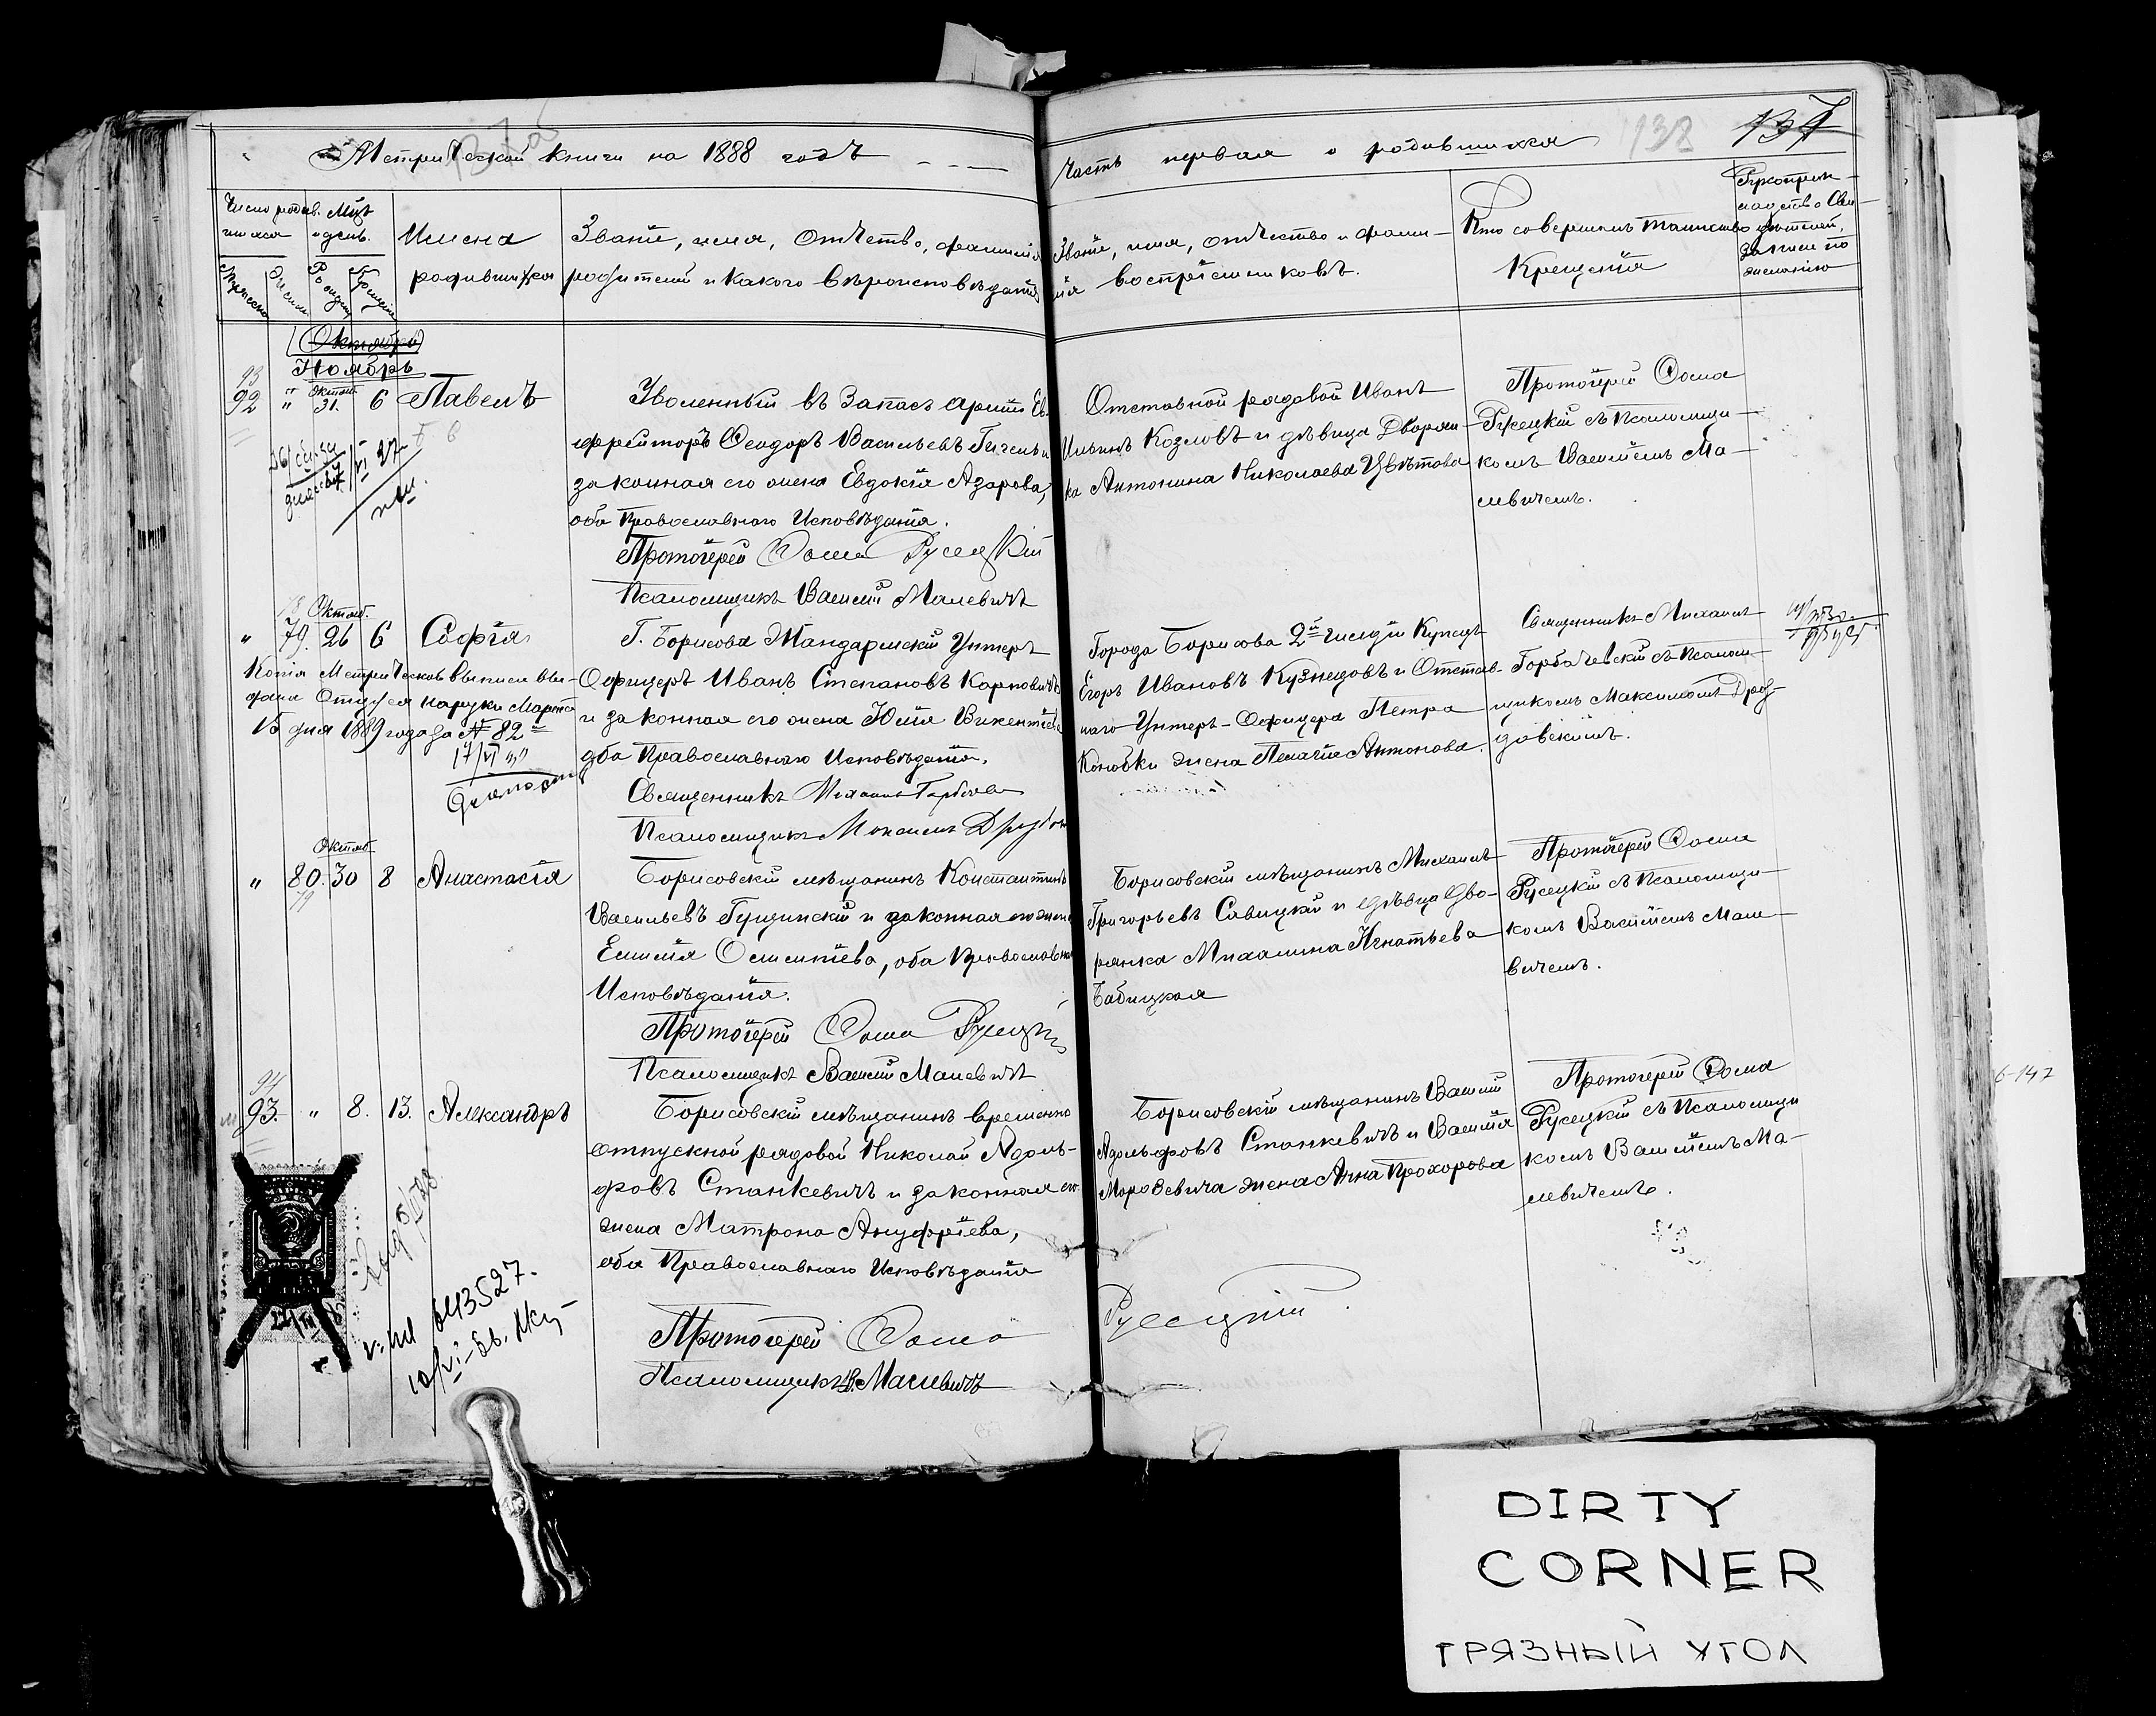 Метрической книги на 1888 годъ
Часть первая о родившихся
138
137
Число родив-
шихся
Мѣц
и день.
Имена
родившихся
Званіе, имя, отчество, фамилія
родителей и какого вѣроисповѣданія
Званіе, имя, отчество и фами-
лія воспріемниковъ.
Кто совершалъ таинство
Крещенія
Рукоприк-
ладство Сви-
дѣтелей,
записи по
желанію
Октябрь
Ноябрь
93
92 " Октяб. 31. 6 Павелъ
Уволенный въ запасъ арміи Еф-
фрейторъ Ѳеодоръ Васильевъ и
законная его жена Евдокія Азарова,
оба Православнаго Исповѣданія.
Протоіерей Ѳома Русецкій
Псаломщикъ Василій Малевичъ
Отставной рядовой Иванъ
Ильинъ Козловъ и дѣвица Дворян-
ка Антонина Николаева Цвѣтова
Протоіерей Ѳома
Русецкій съ Псаломщи-
комъ Василіемъ Ма-
левичемъ.
78 Октяб.
" 79. 26 6 Софія
Копія Метрической выписи вы-
дана Отцу ея на руки Марта
15 дня 1889 года за № 82
17/VI
Г. Борисова Жандармскій Унтеръ
Офицеръ Иванъ Степановъ Карповичъ
и законная его жена Юлія Викентіева
оба Православнаго Исповѣданія.
Священникъ Михаилъ Горбачев
Псаломщикъ Максимъ
Города Борисова 2й гильдіи Купецъ
Егоръ Ивановъ Кузнецовъ и Отстав-
наго Унтеръ-Офицера Петра
Коновки жена Пелагія Антонова.
Священникъ Михаилъ
Горбачевскій съ Псалом-
щикомъ Максимомъ Дроз-
довскимъ.
Октяб.
" 80. 30 8 Анастасія
79
Борисовскій мѣщанинъ Константинъ
Васильевъ Гущинскій и законная его жена
Емилія Осипова, оба Православнаго
Исповѣданія.
Протоіерей Ѳома Русецкій
Псаломщикъ Василій Малевичъ
Борисовскій мѣщанинъ Михаилъ
Григорьевъ Савицкій и дѣвица Дво-
рянка Михалина Игнатьева
Бабицкая
Протоіерей Ѳома
Русецкій съ Псаломщи-
комъ Василіемъ Мале-
вичемъ.
94
93. " 8. 13. Александръ
Борисовскій мѣщанинъ временно
отпускной рядовой Николай Адоль-
фовъ Станкевичъ и законная его
жена Матрона Ануфріева,
оба Православнаго Исповѣданія
Протоіерей Ѳома Русецкій.
Псаломщикъ В. Малевичъ
Борисовскій мѣщанинъ Василій
Адольфовъ Станкевичъ и Василія
Морозевича жена Анна Прохорова
Протоіерей Ѳома
Русецкій съ Псаломщи
комъ Василіемъ Ма-
левичемъ.
643527.
6-147
DIRTY
CORNER
ГРЯЗНЫЙ УГОЛ